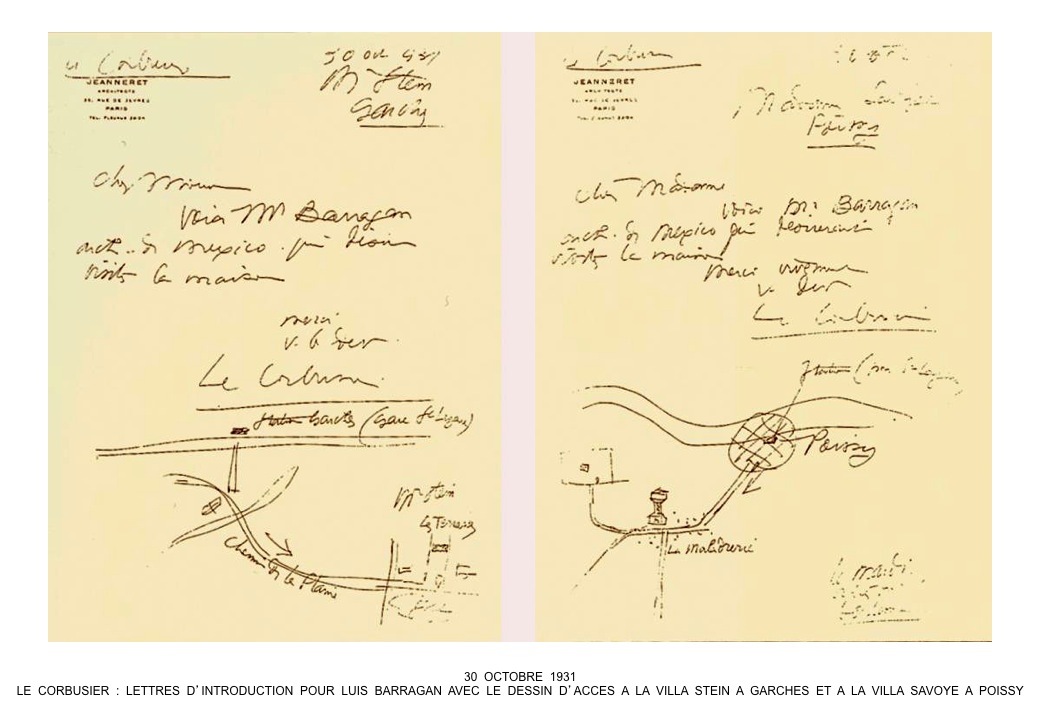 Le Corbusier
JEANNERET
ARCHITECTE
35, RUE DE SEVRES
PARIS
30 oct 1931
Mr Stein
Garches
Cher Monsieur
Voici Mr Barragan
arch. de Mexico qui désire
visiter la maison
merci
Le Corbusier
Station Garches (Gare St Lazare)
Chemin de la Plaine
Mr Stein
Les Terrasses
Le Corbusier
JEANNERET
ARCHITECTE
35, RUE DE SEVRES
PARIS
Madame
Poissy
Chère Madame
Voici Mr Barragan
arch. de Mexico qui
visiter la maison
Merci
Le Corbusier
Station
Poissy
La Maladrerie
30 OCTOBRE 1931
LE CORBUSIER : LETTRES D'INTRODUCTION POUR LUIS BARRAGAN AVEC LE DESSIN D'ACCES A LA VILLA STEIN A GARCHES ET A LA VILLA SAVOYE A POISSY